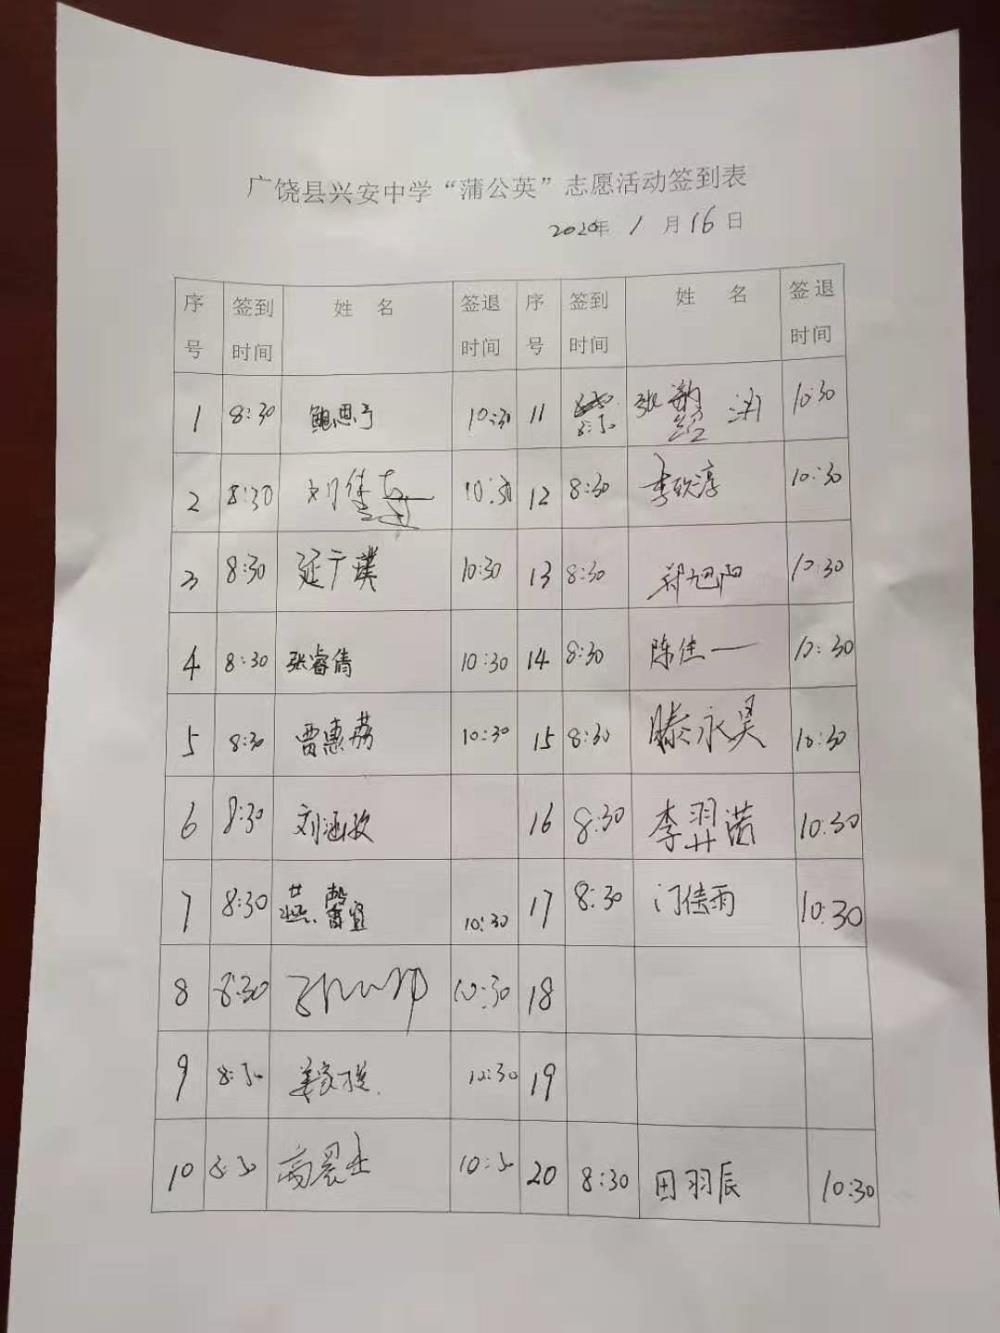 广饶县兴安中学“蒲公英”志愿活动签到表
2020年 1 月 16 日
序号 签到时间 姓 名 签退时间 序号 签到时间 姓 名 签退时间
1 8:30 鲍思宁 10:30 11 张 10:30
2 8:30 刘佳 10:30 12 8:30 李欣淳 10:30
3 8:30 延广璞 10:30 13 8:30 郑旭阳 10:30
4 8:30 张睿倩 10:30 14 8:30 陈佳一 10:30
5 8:30 贾惠荔 10:30 15 8:30 滕永昊 10:30
6 8:30 刘涵 16 8:30 李羿諾 10:30
7 8:30 燕馨宜 10:30 17 8:30 门佳雨 10:30
8 8:30 10:30 18
9 8:30 姜家 10:30 19
10 8:30 高晨 10:30 20 8:30 田羽辰 10:30